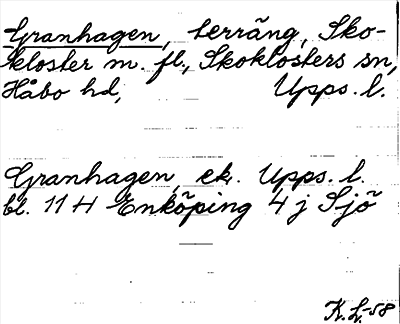 Granhagen, terräng, Sko-
kloster m. fl., Skoklosters sn,
Håbo hd, Upps. l.
Granhagen, ek. Upps. l.
bl. 11 H Enköping 4 j Sjö
K. L.-58